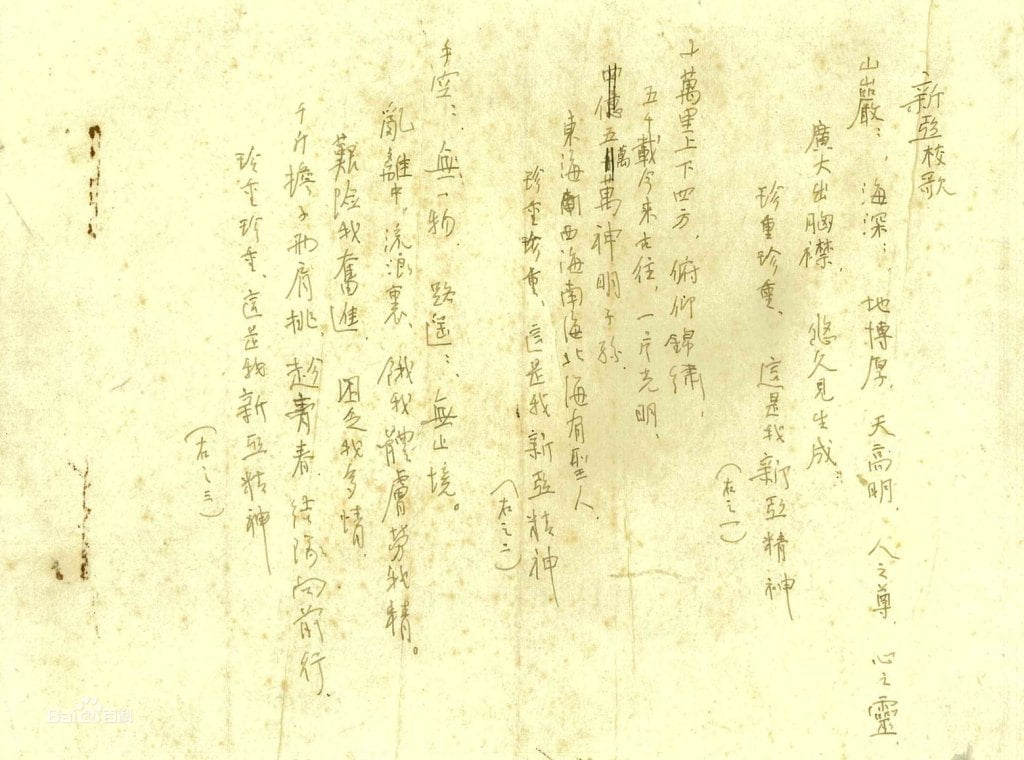 新亞校歌
山巖巖，海深深，地博厚，天高明，人之尊，心之靈，
廣大出胸襟，悠久見生成。
珍重珍重，這是我新亞精神
（右之一）
十萬里上下四方，俯仰錦繡，
五千載今來古往，一片光明，
五萬萬神明子孫．
東海西海南海北海有聖人，
珍重珍重，這是我新亞精神
（右之二）
手空空，無一物，路遙遙，無止境。
亂離中，流浪裏，餓我體膚勞我精。
艱險我奮進，困乏我多情，
千斤擔子兩肩挑，趁青春，結隊向前行．
珍重珍重，這是我新亞精神
（右之三）
Bai 百科